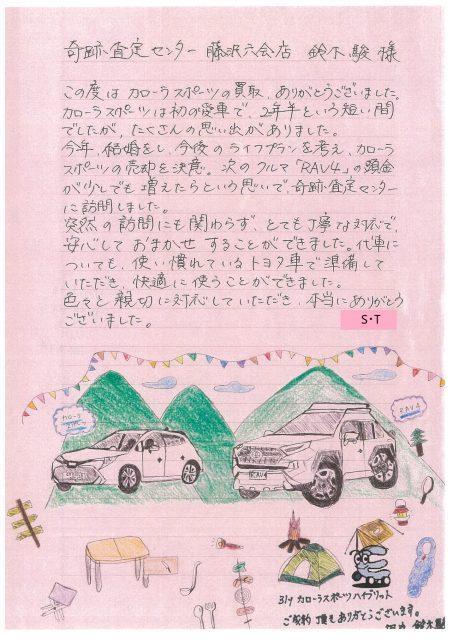 奇跡の査定センター 藤沢六会店 鈴木 駿 様
この度は カローラスポーツの買取、ありがとうございました。
カローラスポーツは初の愛車で、2年半という短い間
でしたが、たくさんの思い出がありました。
今年、結婚をし、今後のライフプランを考え、カローラ
スポーツの売却を決意。次のクルマ「RAV4」の頭金
が少しでも増えたらという思いで、奇跡の査定センター
に訪問しました。
突然の訪問にも関わらず、とても丁寧な対応で、
安心して おまかせ することができました。代車に
ついても、使い慣れているトヨタ車で準備して
いただき、快適に使うことができました。
色々と親切に対応していただき、本当にありがとう
ございました。
S・T
カローラ
スポーツ
RAV4
RAV4
カローラスポーツハイブリット
ご契約頂きありがとうございます。
鈴木駿